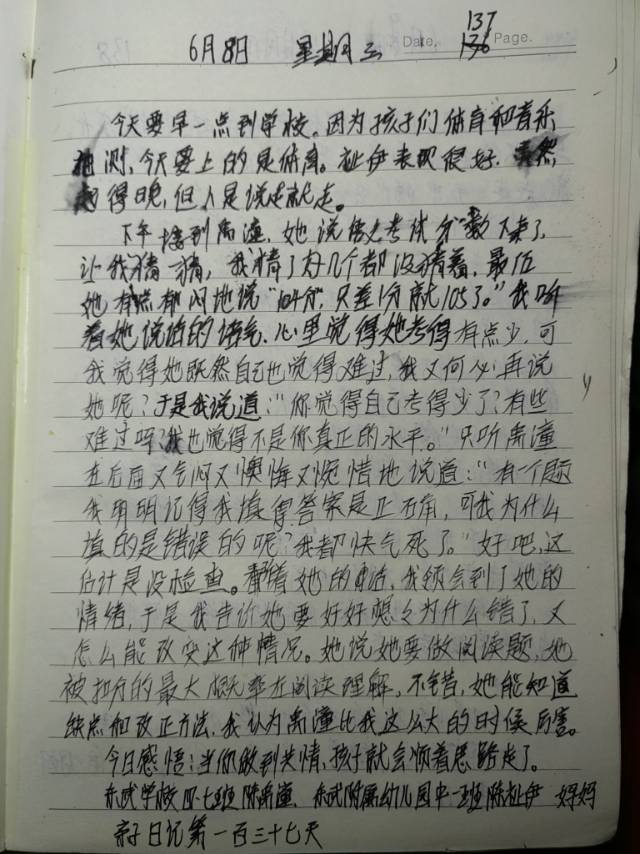 137
6月8日 星期三 Date. 136 Page.
今天要早一点到学校。因为孩子们体育和音乐
抽测,今天要上的是体育。祉伊表现很好,虽然
起得晚,但人是说走就走。
下午接到禹潼,她说语文考试分数下来了,
让我猜一猜,我猜了好几个都没猜着,最后
她有点郁闷地说"104分,只差1分就105了。"我听
着她说话的语气,心里觉得她考得有点少,可
我觉得她既然自己也觉得难过,我又何必再说
她呢?于是我说道:"你觉得自己考得少了?有些
难过吗?我也觉得不是你真正的水平。"只听禹潼
在后面又气闷又懊悔又惋惜地说道:"有一个题
我明明记得我填得答案是正确,可我为什么
填的是错误的呢?我都快气死了。"好吧,这
估计是没检查。看着她的,我领会到了她的
情绪,于是我告诉她要好好想々为什么错了,又
怎么能改变这种情况。她说她要做阅读题,她
被扣分的最大概率在阅读理解,不错,她能知道
缺点和改正方法,我认为禹潼比我这么大的时候厉害。
今日感悟:当你做到共情,孩子就会顺着思路走了。
东武学校四·七班陈禹潼、东武附属幼儿园中一班陈祉伊 妈妈
亲子日记第一百三十七天